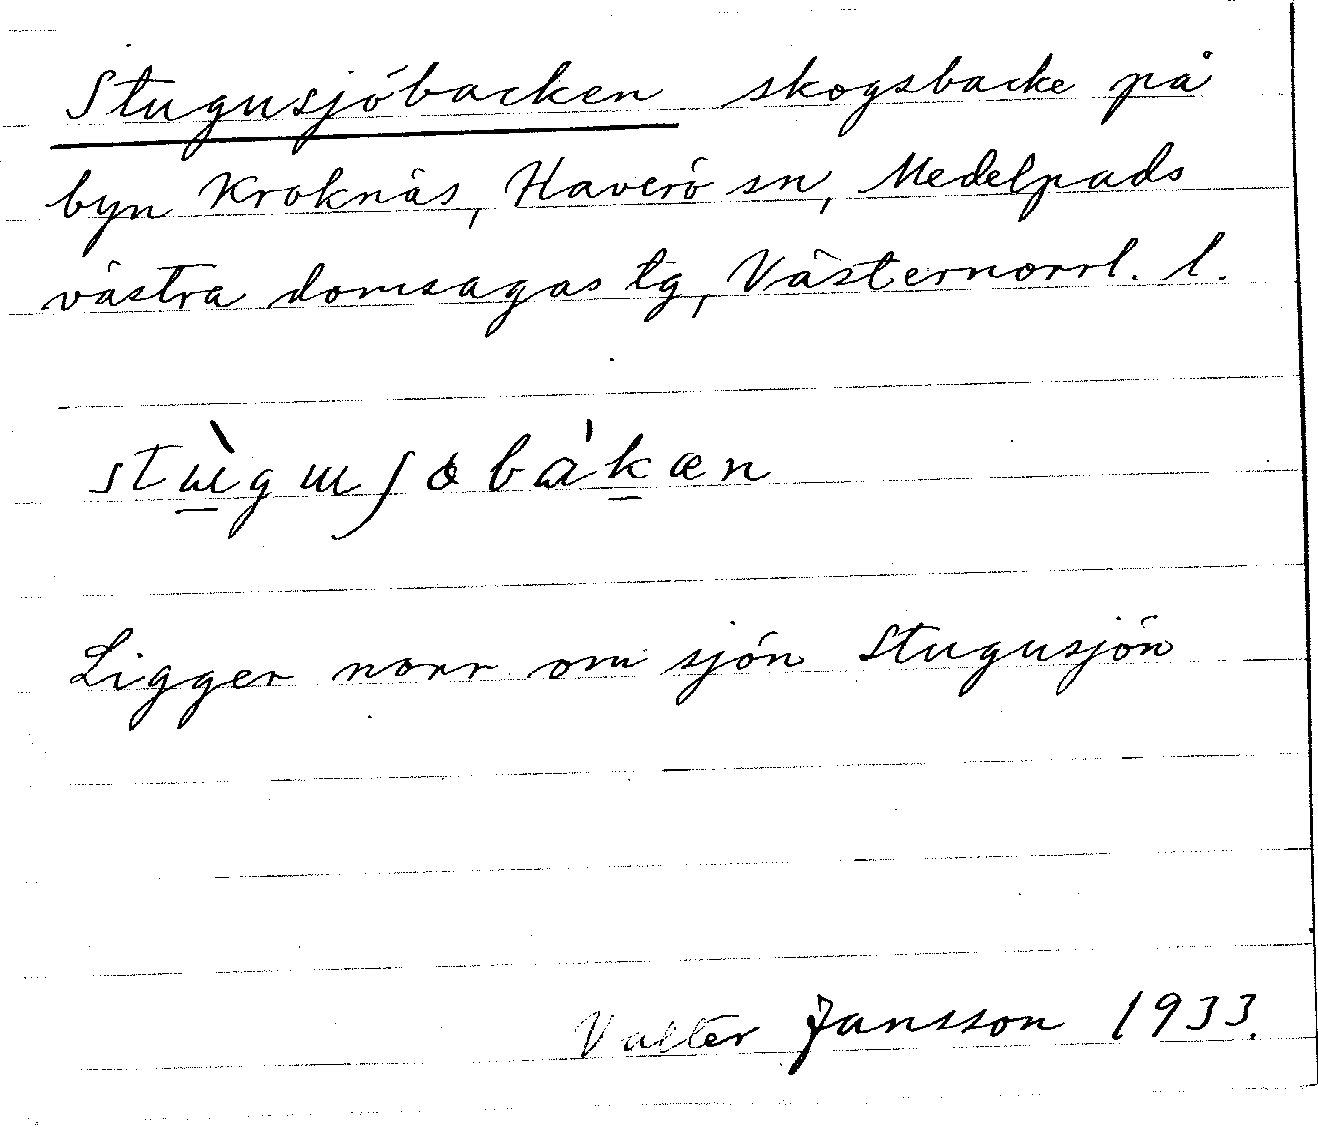 Stugusjöbacken skogsbacke på
byn Kroknäs, Haverö sn, Medelpads
västra domsagas tg, Västernorrl. l.
stɯ̀gɯʃɵbákæn
Ligger norr om sjön Stugusjön
Valter Jansson 1933.